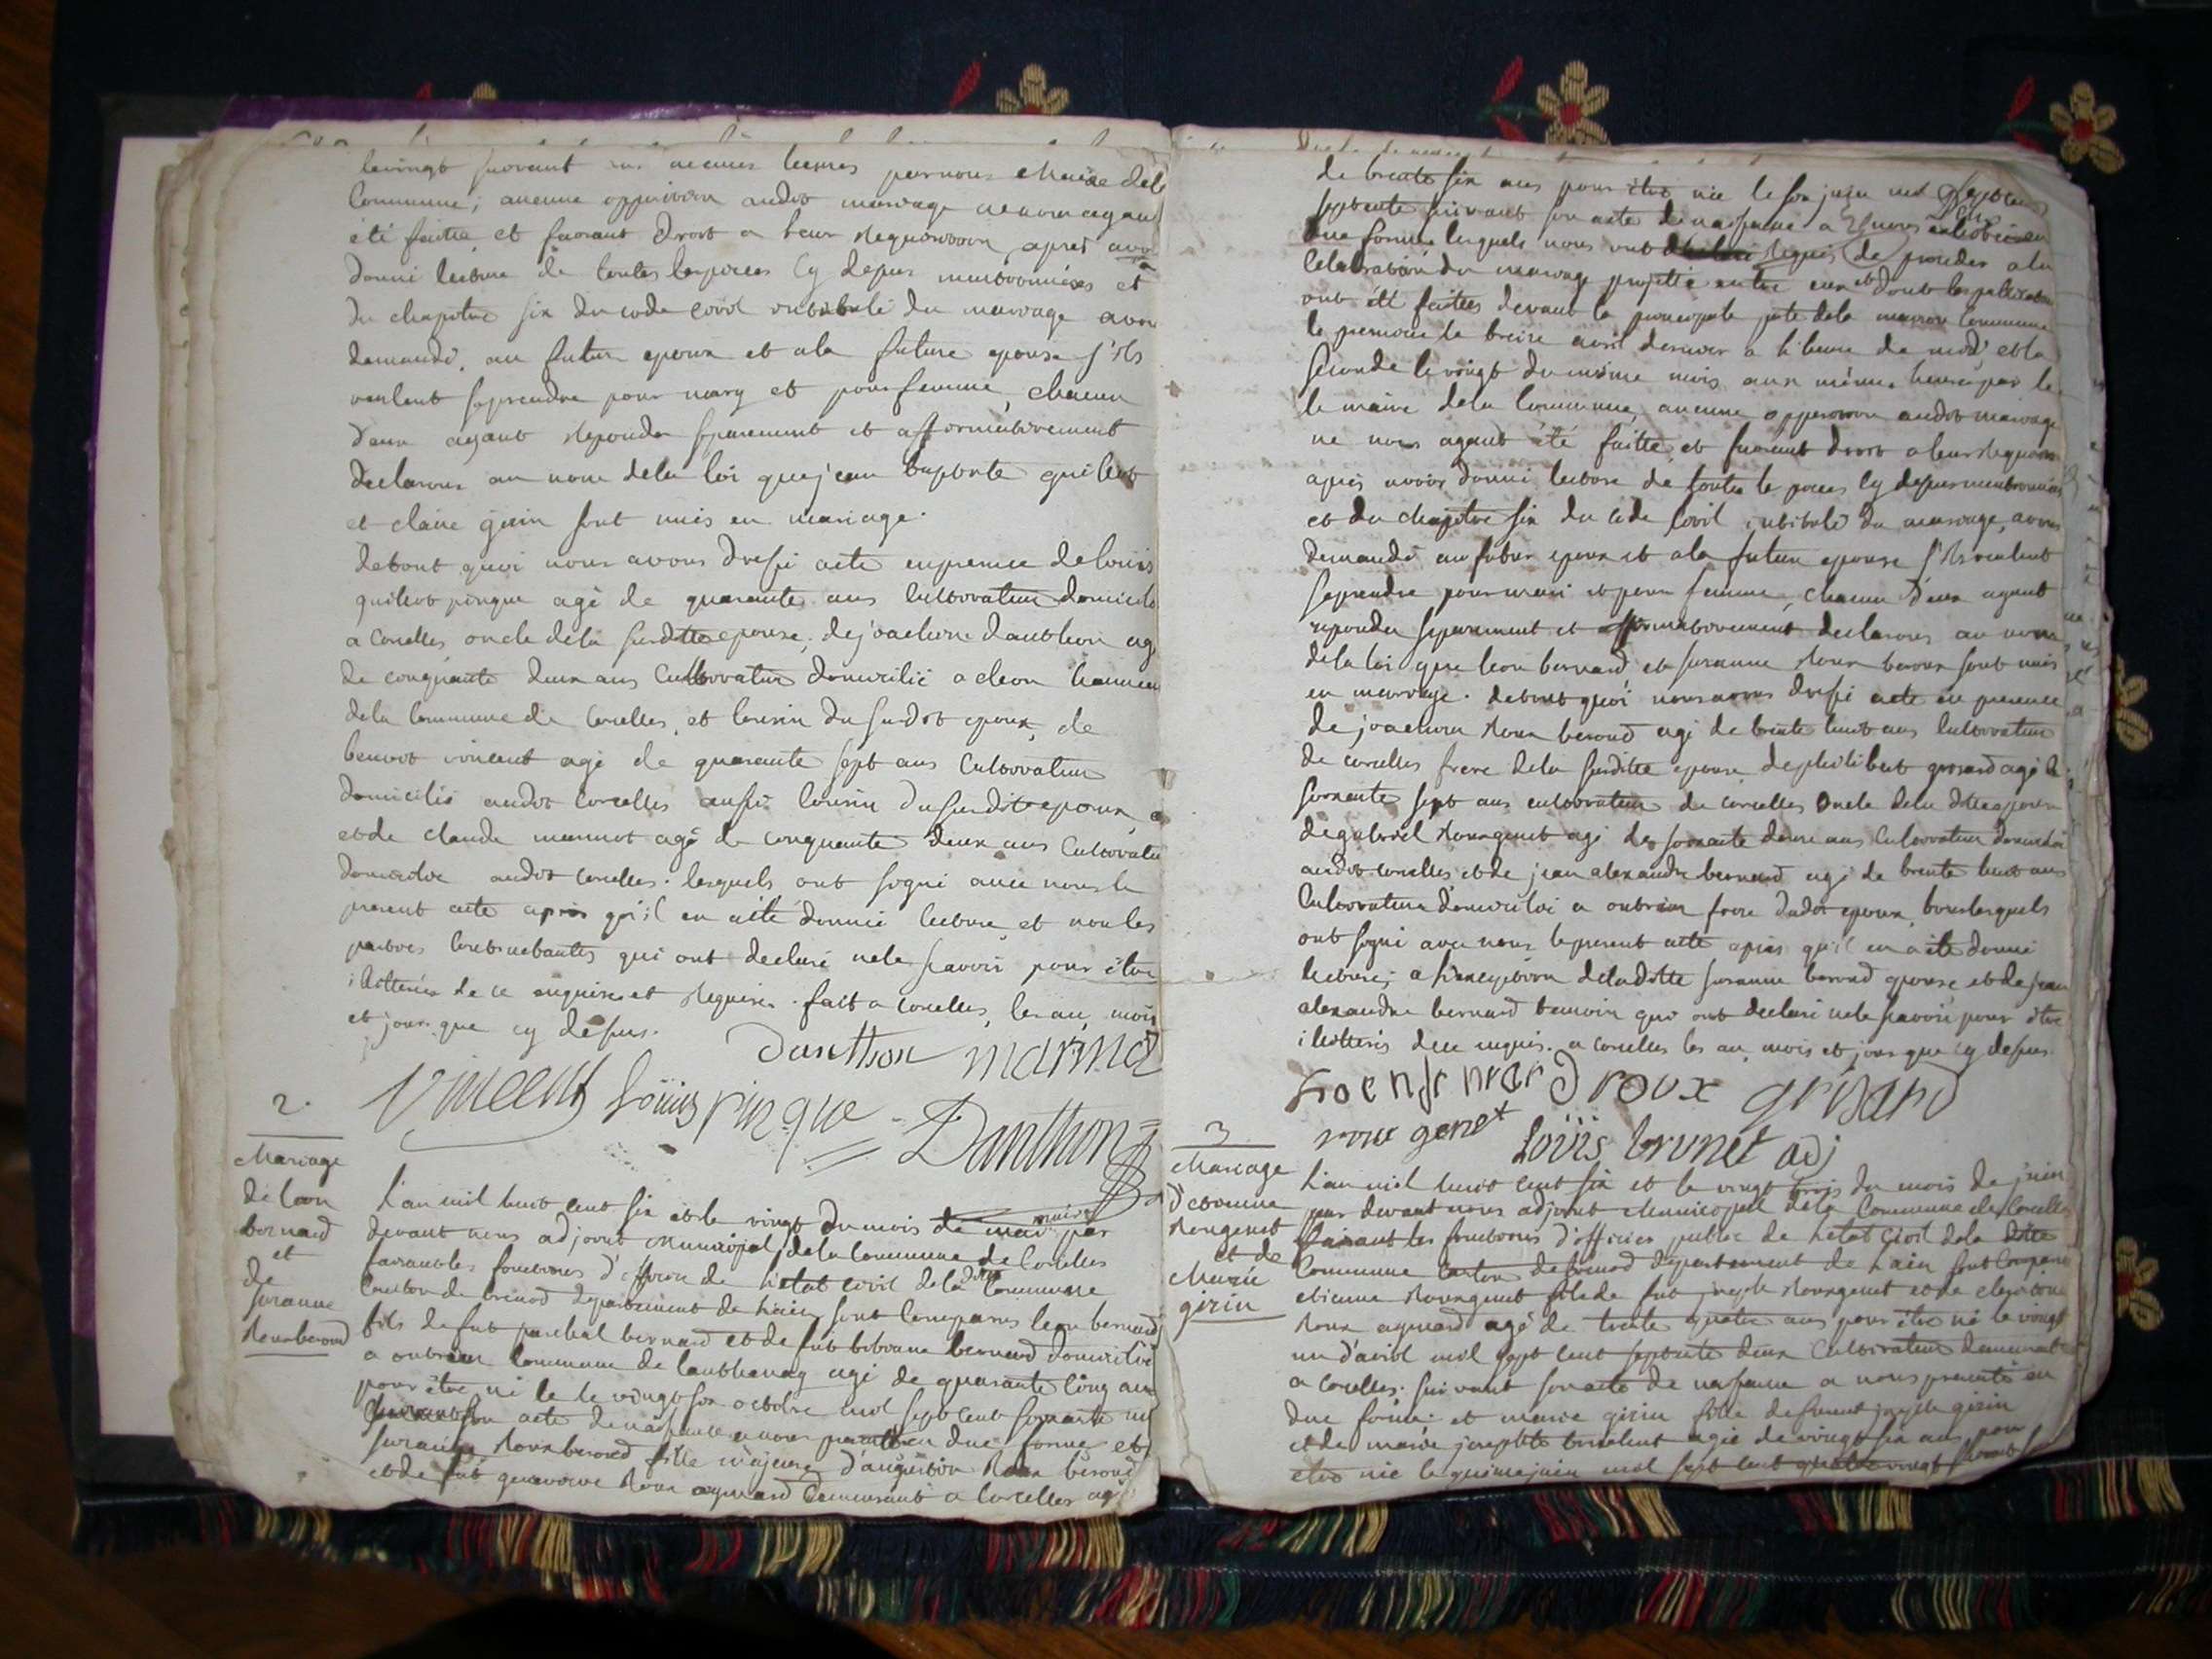 levingt suivant aux memes heures par nous Maire dela
Commune; aucune opposition audit mariage ne nous ayant
été faitte et faisant droit a leur requisition apres avoir
donné lecture de toutes les pieces cy dessus mentionnées et
du chapitre six du code civil intitulé du mariage avons
demandé, au futur epoux et ala future epouse s'ils
veulent se prendre pour mary et pour femme, chacun
deux ayant repondu separement et affirmativement
declarons au nom dela loi que jean baptiste guillot
et claire girin sont unis en mariage.
detout quoi nous avons dressé acte en presence de louis
guillot pingue agé de quarante ans Cultivateur domicilié
a Corcelles oncle dela susditte epouse, de joachim danthon agé
de cinquante deux ans Cultivateur domicilié a cleon hameau
dela Commune de Corcelles, et cousin du susdit epoux, de
benoit vincent agé de quarante sept ans Cultivateur
domicilié audit Corcelles aussi cousin du susdit epoux
et de claude marinet agé de cinquante deux ans Cultivateur
domicilié audit corcelles. lesquels ont signé avec nous le
present acte après qu'il en aété donné lecture et non les
parties contractantes qui ont declaré nele scavoir pour être
illitterés de ce enquises et requises. fait a corcelles, les an, mois
et jour que cy dessus.
Danthon marinet
Vincent Loüis pingue Danthon
maire
2.
Mariage
de léon
bernard
et
de
suzanne
Rouxberod
L'an mil huit cent six et le vingt du mois de mai par
devant nous adjoint Municipal dela Commune de Corcelles
faisant les fonctions d'officier de l'etat civil de la ditte Commune
Canton de brenod departement de l'ain, sont comparus leon bernard
fils de fut paschal bernard et de fut bernard domicilié
a Commune de lanthenay agé de quarante cinq ans
pour être né le le vingt six octobre mil sept cent soixante un
suivant son acte de naissance a nous presenté en due forme et
suzanne Rouxberod fille majeure d'augustin Roux berod
et de fut genevieve Roux aymard demeurant a Corcelles agé
de trente six ans pour être née le six juin mil sept cent
septante suivant son acte de naissance a nous exhibé en
due forme lesquels nous ont requis de proceder ala
celebration du mariage projetté entre eux et dont les publications
ont été faittes devant la principale porte dela maison Commune
la premiere le treize avril dernier a l'heure de midi et la
seconde le vingt du même mois aux mêmes heures par le
le maire dela Commune, aucune opposition audit mariage
ne nous ayant été faitte, et faisant droit a leur requisition
après avoir donné lecture de toutes le pieces cy dessus mentionnées
et du chapitre six du code Civil intitulé du mariage, avons
demandé au futur epoux et ala future epouse s'ils veulent
se prendre pour mari et pour femme, chacun d'eux ayant
repondu separement et affirmativement declarons au nom
dela loi que leon bernard et suzanne Roux beroux sont unis
en mariage. detout quoi nous avons dressé acte en presence
de joachim Roux beroud agé de trente huit ans Cultivateur
de corcelles frere dela susditte epouse, de philibert grosard agé de
soixante sept ans cultivateur de corcelles oncle dela ditte epouse
de gabriel Rouxgenet agé de soixante douze ans Cultivateur domicilié
audit corcelles et de jean alexandre bernard agé de trente huit ans
Cultivateur domicilié a frere dudit epoux, tous lesquels
ont signé avec nous le present acte après qu'il en a été donné
lecture; a l'exception deladitte suzanne berod epouse et de jean
alexandre bernard temoin qui ont declaré nele scavoir pour être
illitterés dece enquis. a corcelles les an, mois et jour que cy dessus
roux grisard
roux genet Loüis brunet adj
3
Mariage
d'etienne
Rougenet
et de
Marie
girin
L'an mil huit cent six et le vingt trois du mois de juin
par devant nous adjoint Municipal dela Commune de Corcelles
faisant les fonctions d'officier public de l'etat civil dela ditte
Commune Canton de brenod departement de l'ain sont Comparus
etienne Rouxgenet fils de fut joseph Rouxgenet et de
Roux aymard agé de trente quatre ans pour être né le vingt
un d'avril mil sept cent septante deux Cultivateur demeurant
a Corcelles. suivant son acte de naissance a nous presenté en
due forme. et marie girin fille de joseph girin
et de marie josephte agée de vingt six ans pour
etre née le juin mil sept cent quatre vingt